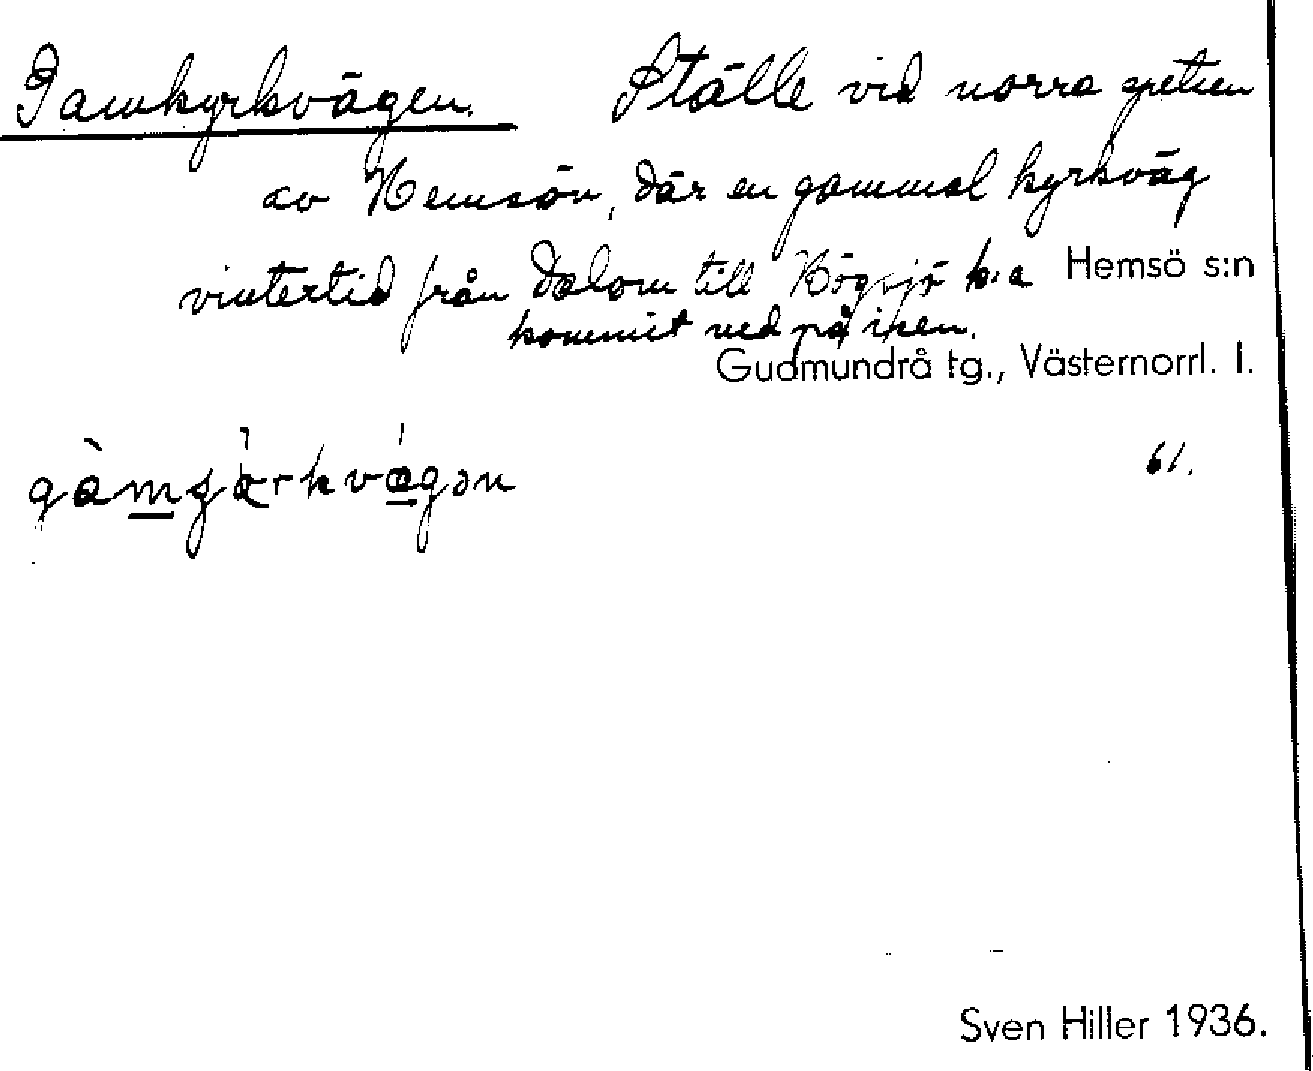 Gamkyrkvägen. Ställe vid norra spetsen
av Hemsön, där en gammal kyrkväg
vintertid från Dalom till Högsjö k:a Hemsö s:n
kommit ned på isen.
Gudmundrå tg., Västernorrl. l.
61.
Sven Hiller 1936.